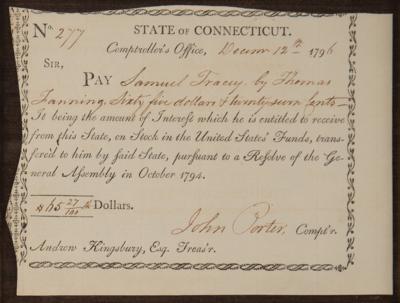 No. 277
STATE OF CONNECTICUT.
Comptroller's Office, Decem 12th 1796
SIR,
PAY Samuel Tracey, by Thomas
Fanning, Sixty five dollar & twenty seven Cents—
To being the amount of Interest which he is entitled to receive
from this State, on Stock in the United States' Funds, trans-
fered to him by said State, pursuant to a Resolve of the Ge-
neral Assembly in October 1794.
$65 27/100 Dollars.
John Porter, Compt'r.
Andrew Kingsbury, Esq. Treas'r.